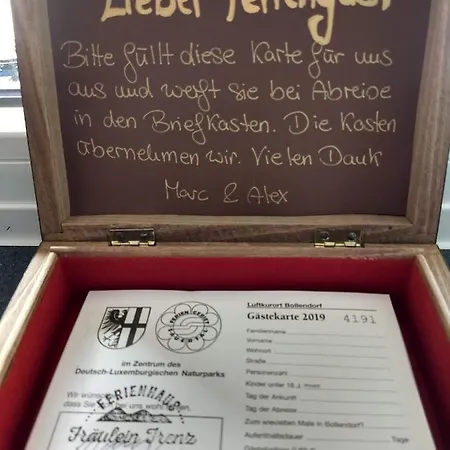 Lieber Feriengast
Bitte füllt diese Karte für uns
aus und werft sie bei Abreise
in den Briefkasten. Die Kosten
übernehmen wir. Vielen Dank
Marc & Alex
FERIEN GEBIET
SAUERTAL
im Zentrum des
Deutsch-Luxemburgischen Naturparks
Wir wünschen
dass Sie bei uns wohl
FERIENHAUS
Fräulein Trenz
Luftkurort Bollendorf
Gästekarte 2019 4191
Familienname
Vorname
Wohnort
Straße
Personenzahl
Kinder unter 16 J.
Tag der Ankunft
Tag der Abreise
Zum wievielten Male in Bollendorf?
Aufenthaltsdauer Tage